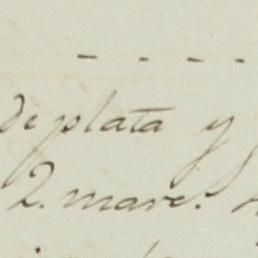 - - - -
de plata y
2. marc.